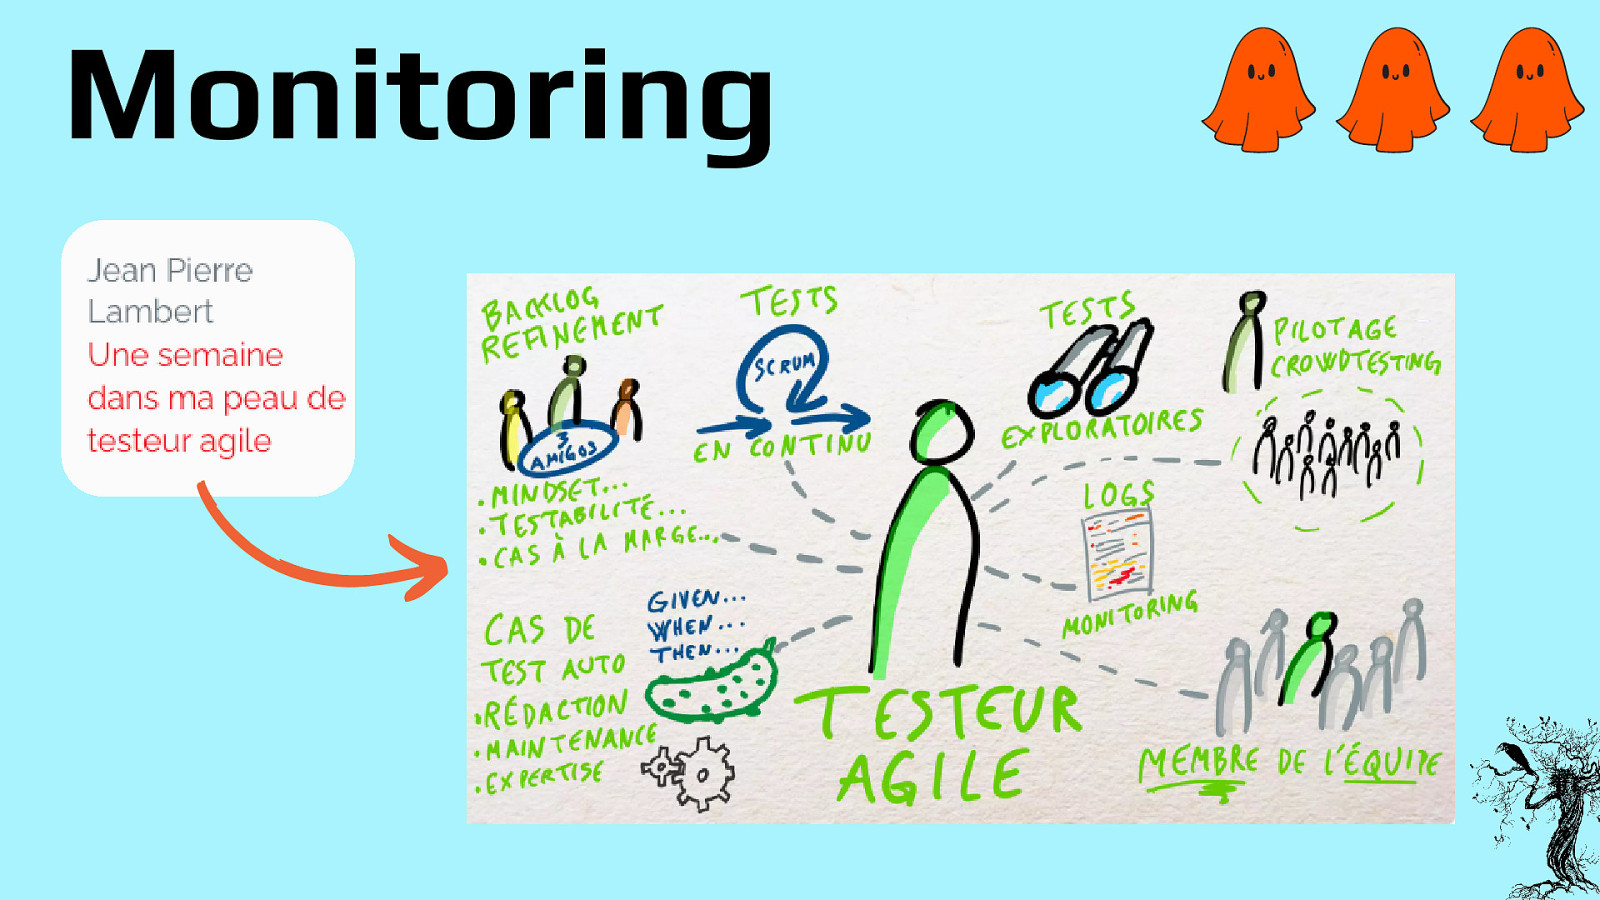 Monitoring
Jean Pierre
Lambert
Une semaine
dans ma peau de
testeur agile
BACKLOG
REFINEMENT
3
AMIGOS
• MINDSET...
• TESTABILITÉ...
• CAS À LA MARGE...
TESTS
SCRUM
EN CONTINU
TESTS
EXPLORATOIRES
PILOTAGE
CROWDTESTING
LOGS
MONITORING
CAS DE
TEST AUTO
• RÉDACTION
• MAINTENANCE
• EXPERTISE
GIVEN...
WHEN...
THEN...
TESTEUR
AGILE
MEMBRE DE L'ÉQUIPE